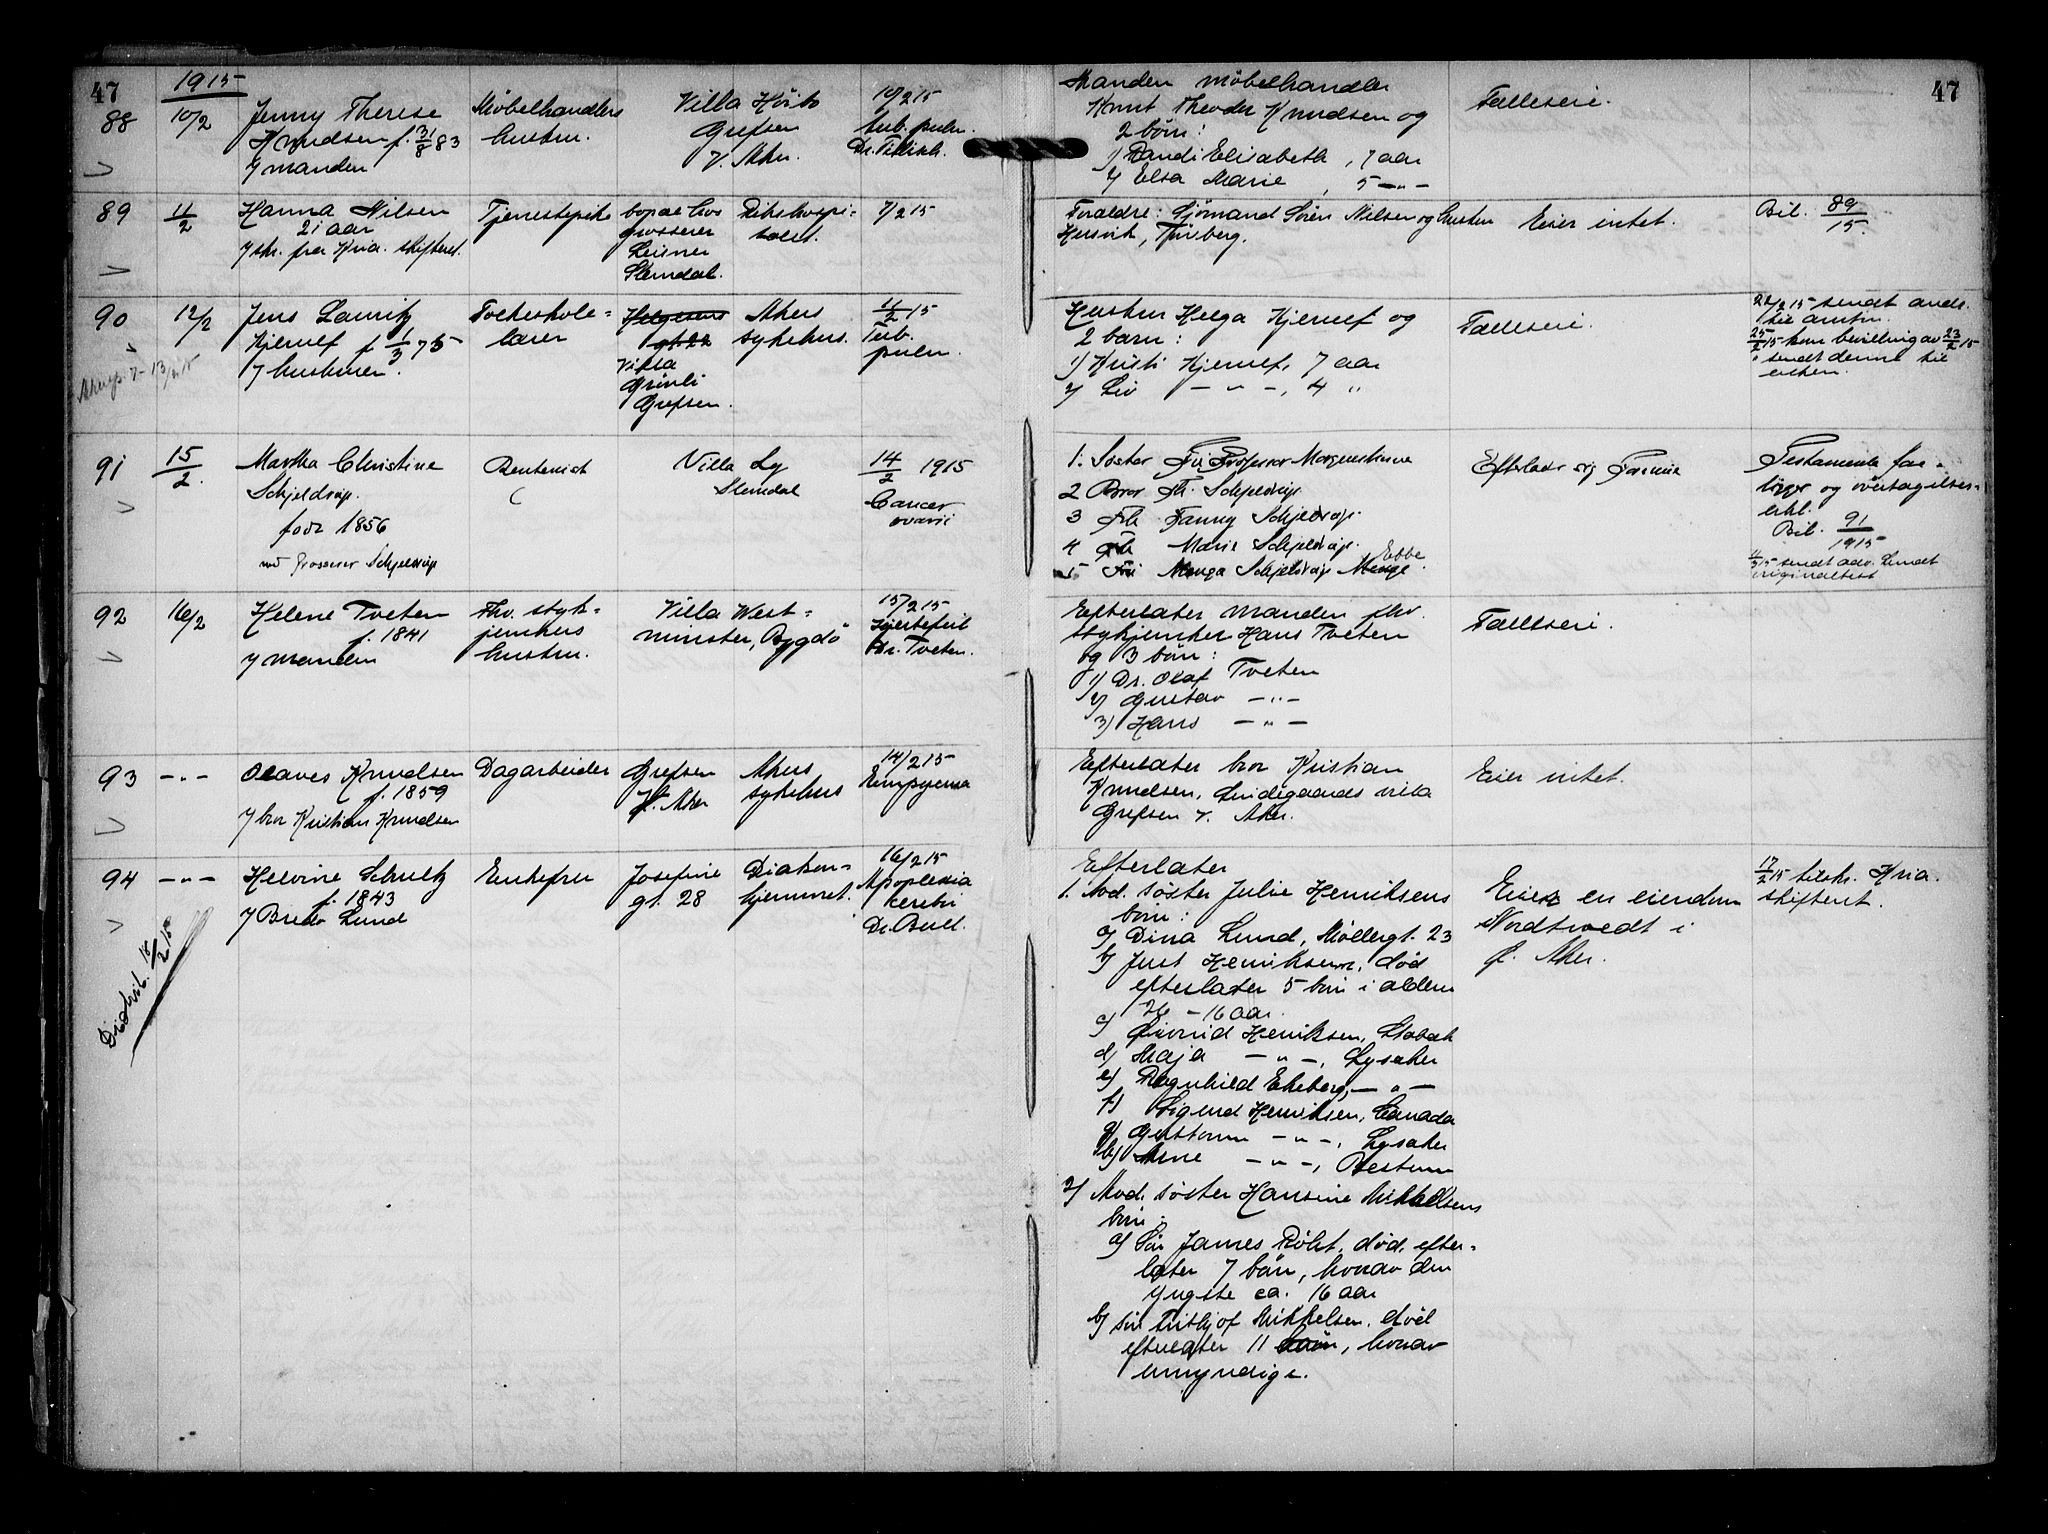 47
1915
88
10/2
Jenny Therese
Knudsen f. 3/8 83
v/ manden
Møbelhandlers
hustru.
Villa
Grefsen
V. Aker.
10/2 15
tub. pulm.
Manden møbelhandler
Knut Theodor Knudsen og
2 børn:
1) Randi Elisabeth, 7 aar
2) Elsa Marie, 5 -"-
Fælleseri.
47
89
11/2
Hanna Nilsen
21 aar
v/ skr. fra Kria. skifteret.
Tjenestepike
bopæl hos
grosserer
Slemdal.
Rikshospi-
talet.
7/2 15
Forældre: Sjømand Søren Nilsen og hustru
Husvik, Tønsberg.
Eier intet.
Bil. 89/15.
90
12/2
Jens Lauritz
Kjerulf f. 1/3 75
v/ hustruen.
Folkeskole-
lærer
Helgesens
gt. 22
Villa
Grinli
Grefsen.
Akers
sykehus.
11/2 15
Tub.
pulm.
Hustru Helga Kjerulf og
2 barn:
1) Kirsti Kjerulf, 7 aar
2) Liv -"-, 4 "
Fælleseri.
22/2 15 sendt ands.
til amtm.
25/2 15 kom bevilling av 23/2 15
" sendt denne til
enken.
91
15/2.
Martha Christine
Schjeldrup.
født 1856
ved Grosserer Schjeldrup
Rentenist
Villa Ly
Slemdal
14/2 1915
Cancer
ovarii
1. Søster Fru Professor Morgenstierne
2 Bror Th. Schjeldrup
3 Frk. Fanny Schjeldrup.
4 Frk Marie Schjeldrup.
5 Fru Menga Schjeldrup
Ebbe
Efterlader sig Formue
Testamente fore-
ligger og overtagelses-
erkl.
Bil. 91/1915
4/3 15 sendt adv. Lundt
originaltest
92
16/2
Helene Tveten
f. 1841
v/ manden
Fhv. styk-
junkers
hustru.
Villa West-
minster, Bygdø
15/2 15
Hjertefeil
Dr. Tveten.
Efterlater manden fhv.
stykjunker Hans Tveten
og 3 børn:
1) Dr. Olaf Tveten
2) Gustav -"-
3) Hans -"-
Fælleseri.
93
-"-
Olaves Knudsen
f. 1859
v/ bror Kristian Knudsen
Dagarbeider
Grefsen
V. Aker
Akers
sykehus
14/2 15
Empyema
Efterlater bror Kristian
Knudsen, Lindegaards villa
Grefsen V. Aker.
Eier intet.
94
-"-
Helvine Schultz
f. 1843
v/ Bredo Lund
Distrib. 18/2 15
Enkefru
Josefine
gt. 28
Diakon-
hjemmet.
16/2 15
Apoplexia
cerebri
Dr. Bull.
Efterlater
1. Avd. søster Julie Henriksens
børn:
a) Dina Lund, Møllergt. 23
b) Just Henriksen, død
efterlater 5 børn i alderen
26 - 16 aar.
c) Øivind Henriksen, Stabæk
d) Maja -"-, Lysaker
e) Ragnhild Ekeberg, -"-
f) Sigurd Henriksen, Canada
g) Guttorm -"-, Lysaker
h) Arne -"-, Bestum
2) Avd. søster Hansine Mikkelsens
børn:
a) Søn James død, efter-
later 7 børn, hvorav den
yngste ca. 16 aar
b) søn Fritjof Mikkelsen, død
efterlater 11 børn, hvorav
umyndige.
Eier en eiendom
Nordtvedt i
Ø. Aker.
17/2 15 tilskr. Kria.
skifteret.